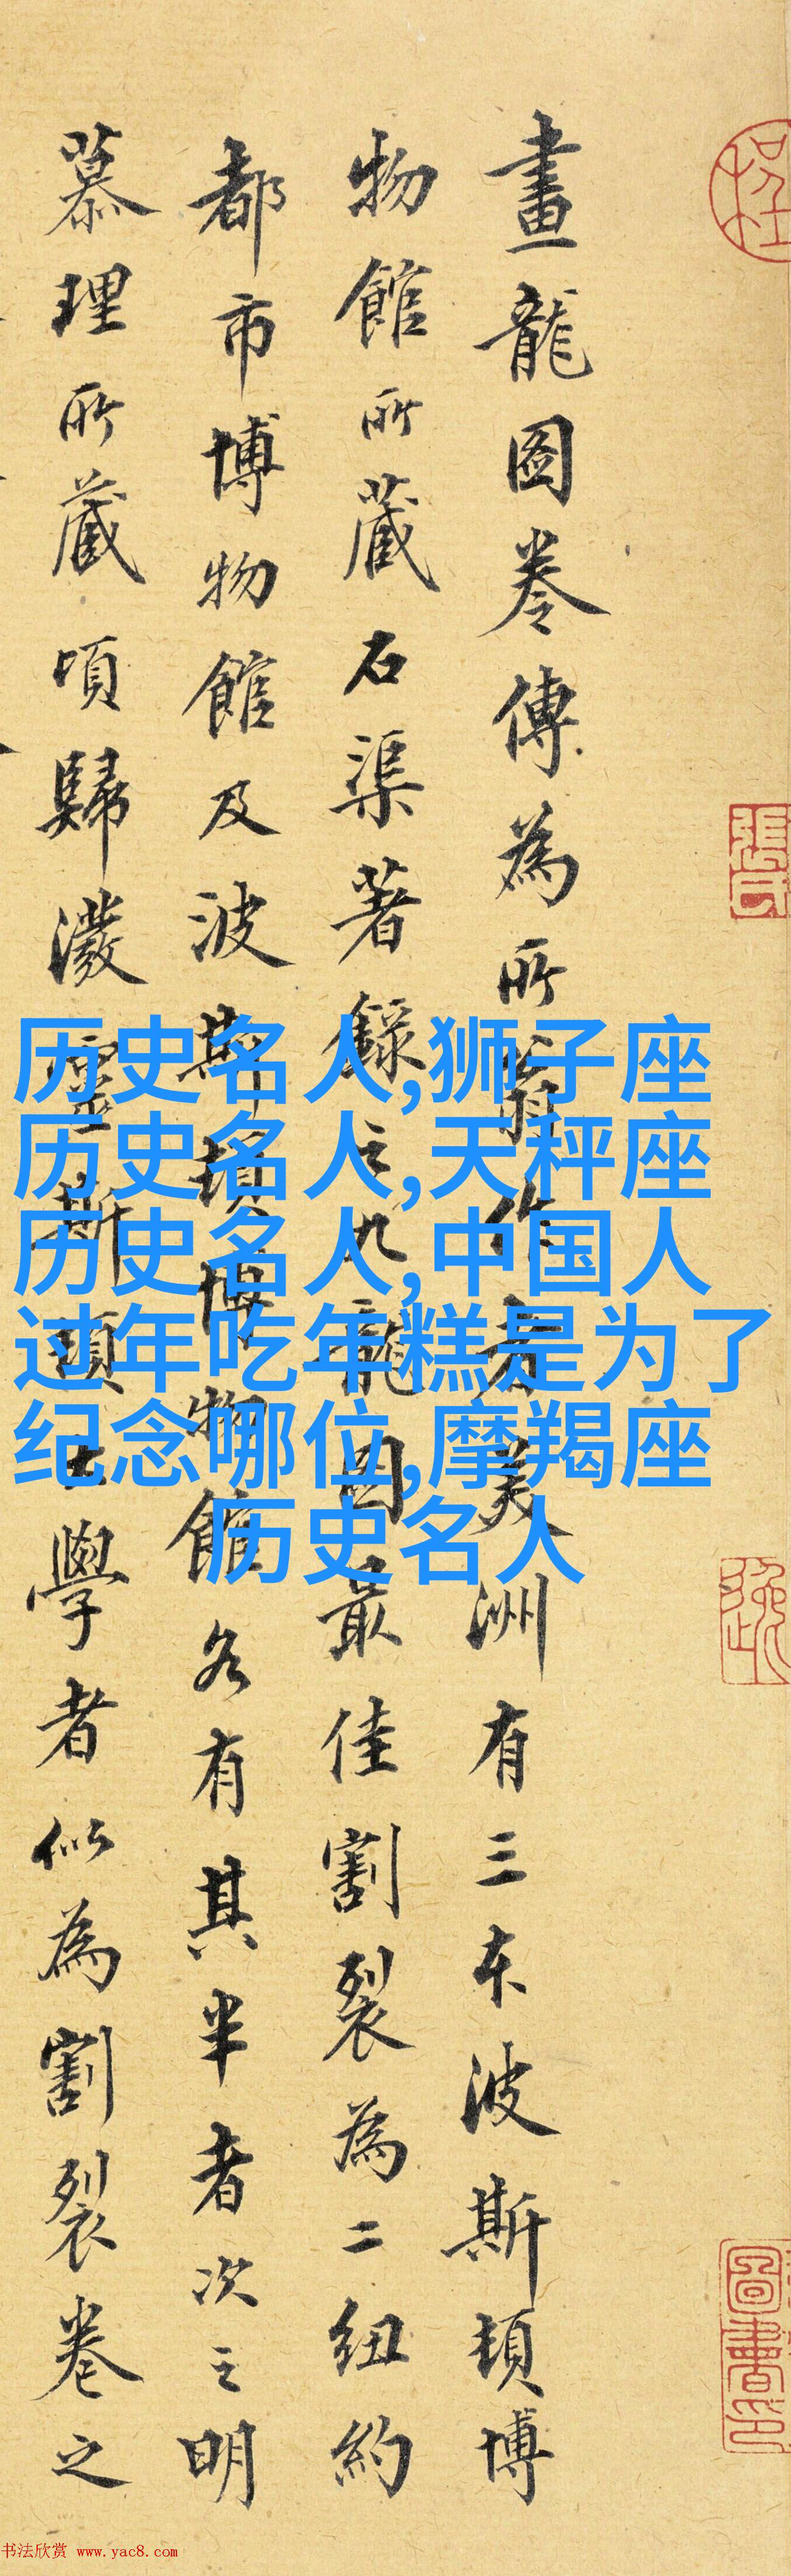 畫龍圖卷傳為所翁作者美洲有三本波斯頓博
物館所藏石渠著錄之九龍圖最佳割裂為二紐約
都市博物館及波斯頓博物館各有其半者次之明
慕理所藏頃歸潑靈斯頓大學者似為割裂卷之
历史名人,狮子座
历史名人,天秤座
历史名人,中国人
过年吃年糕是为了
纪念哪位,摩羯座
历史名人
張氏
书法欣赏 www.yac8.com